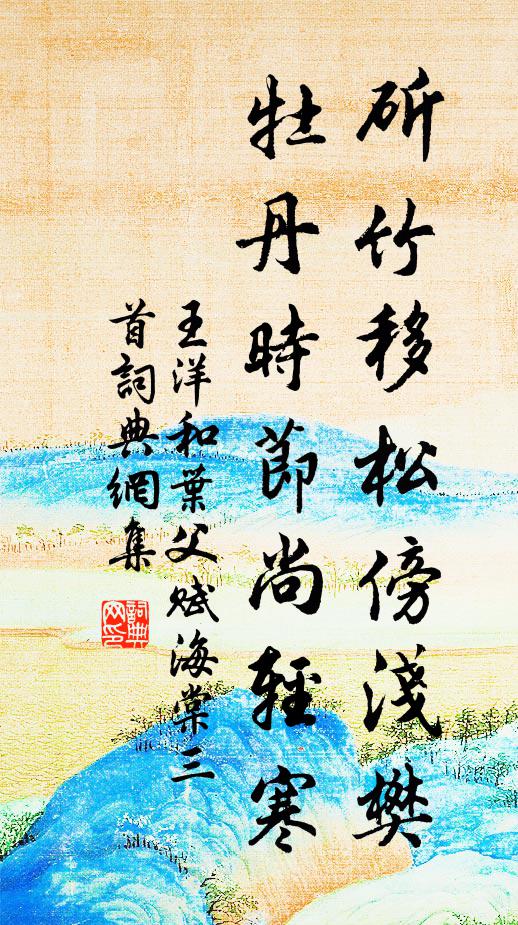 斫竹移松傍淺樊
牡丹時節尚輕寒
王洋和葉父賦海棠三
首詞典網集
詞典網印